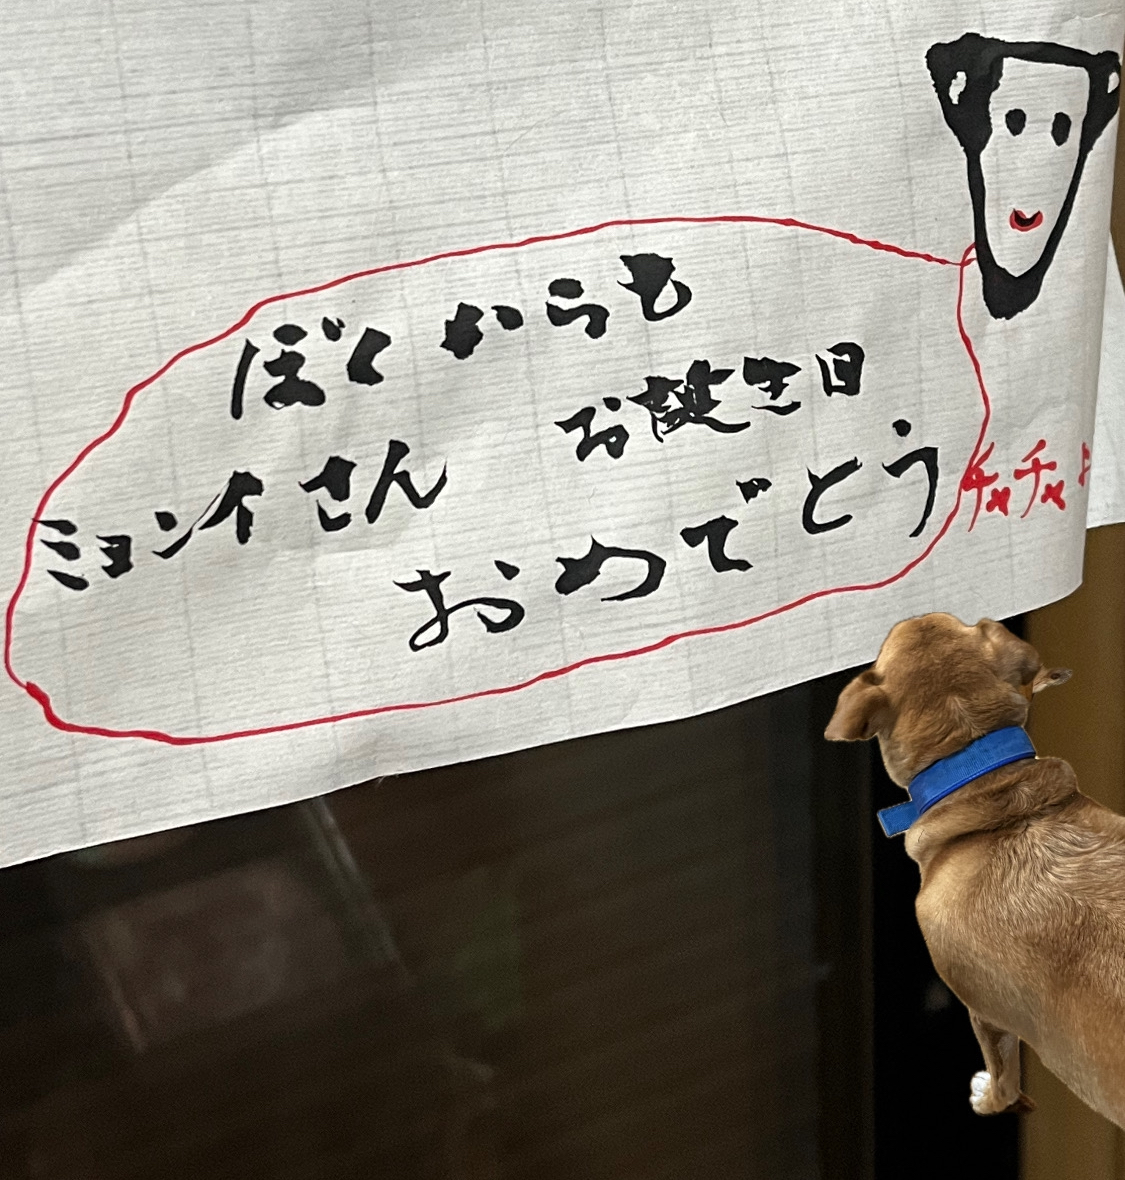 ぼくからも
お誕生日
ミョンイさん
おめでとう
チャチャより